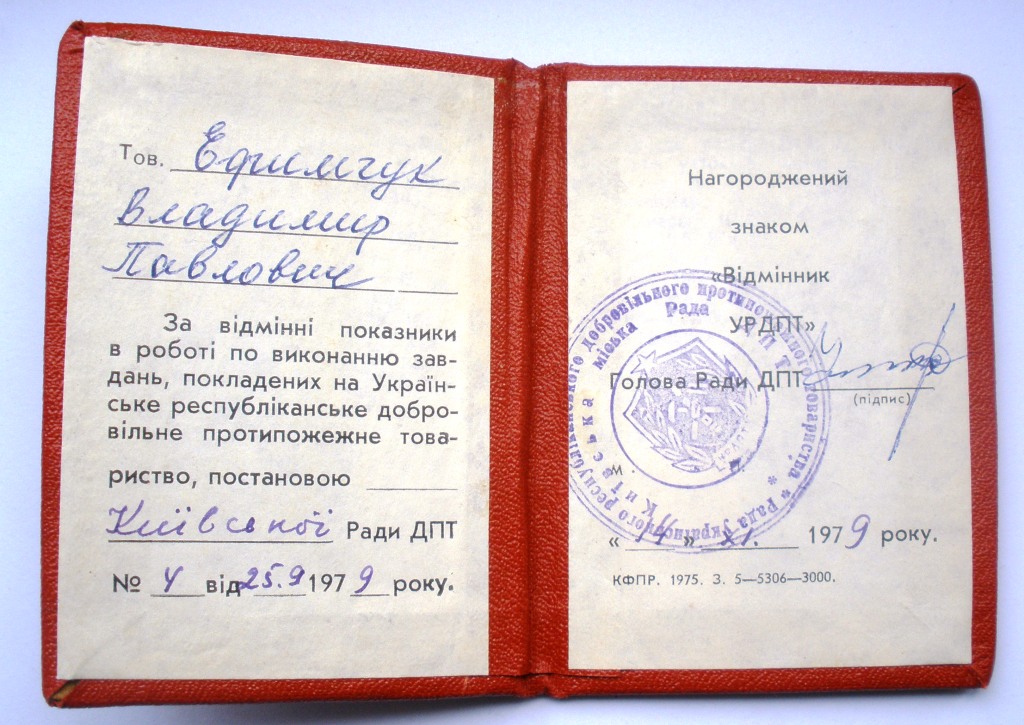 Тов. Ефимчук
Владимир
Павлович
За відмінні показники
в роботі по виконанню зав-
дань, покладених на Україн-
ське республіканське добро-
вільне протипожежне това-
риство, постановою
Київської Ради ДПТ
№ 4 від 25.9 1979 року.
Нагороджений
знаком
«Відмінник
УРДПТ»
Голова Ради ДПТ
(підпис)
м.
«14» XI. 1979 року.
КФПР. 1975. З. 5—5306—3000.
Рада Українського республіканського добровільного протипожежного товариства
Київська міська Рада ДПТ